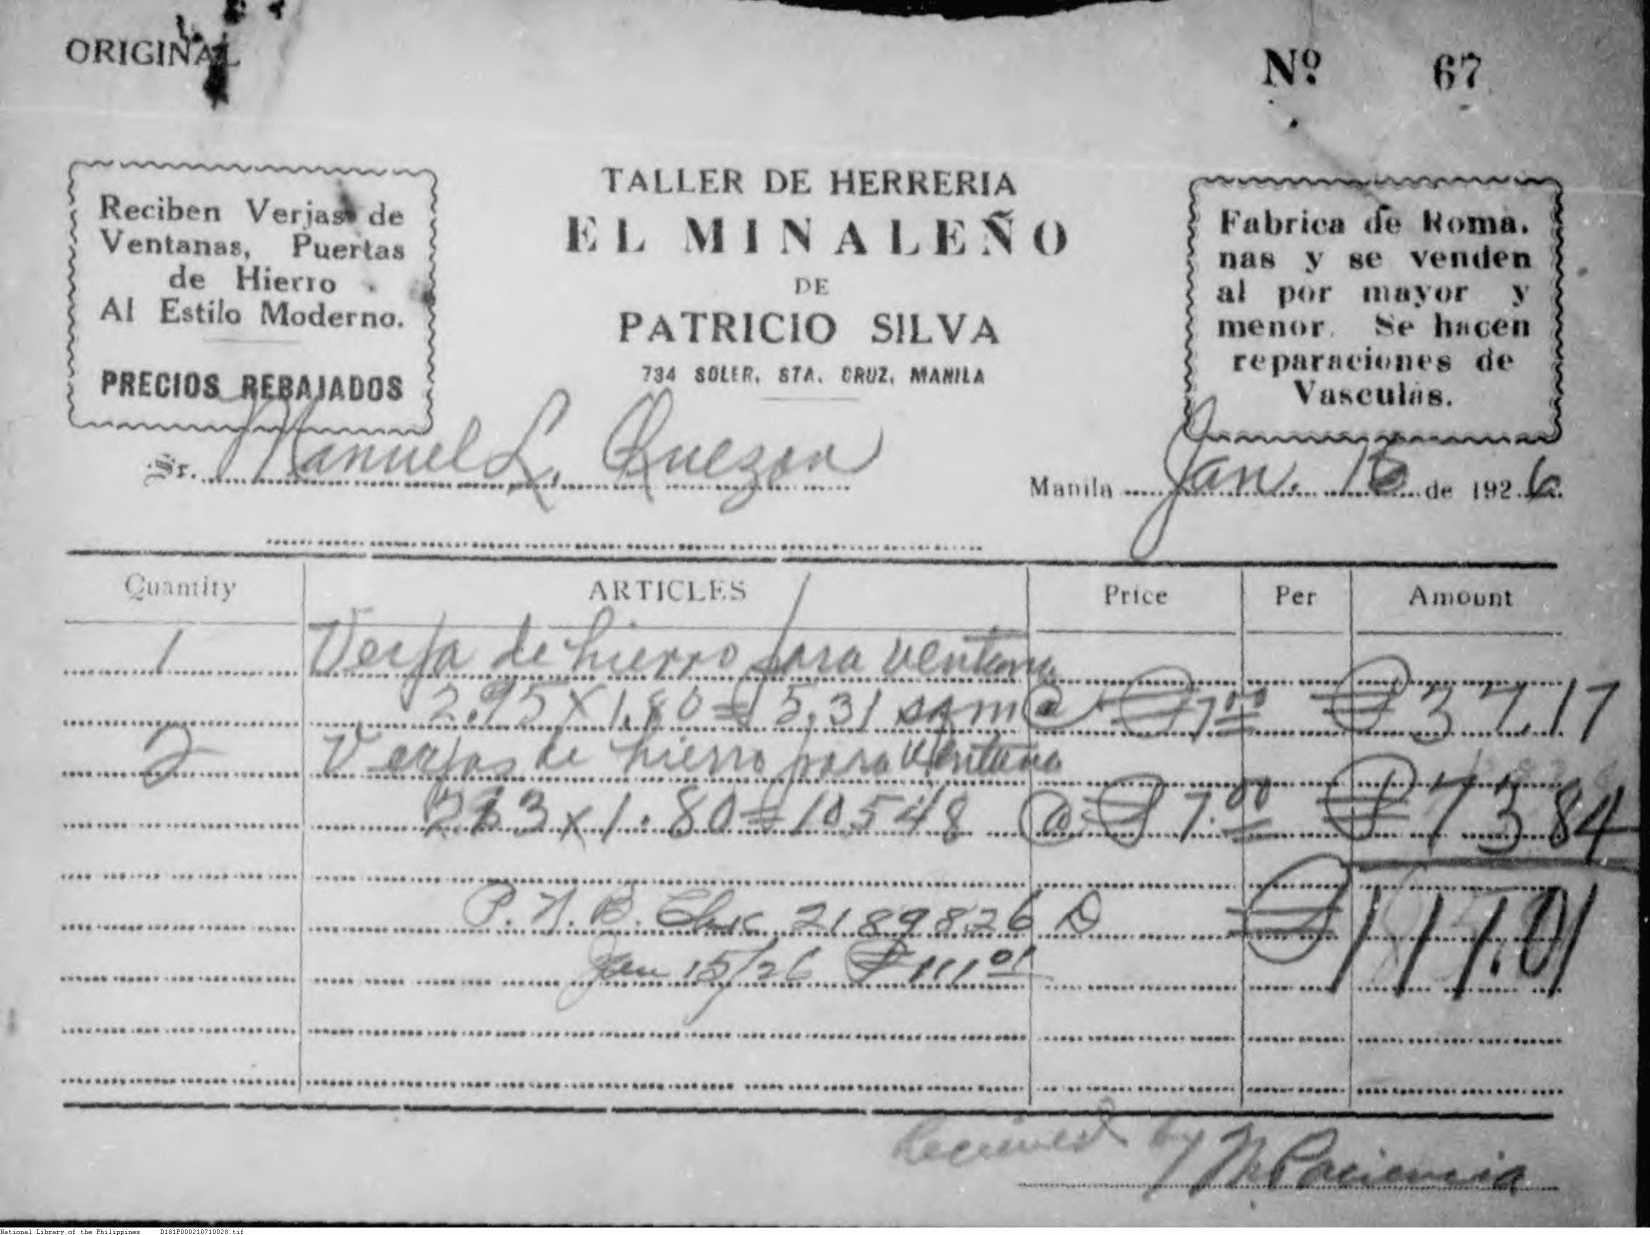 ORIGINAL
Nº 67
Reciben Verjas de
Ventanas, Puertas
de Hierro
Al Estilo Moderno.
PRECIOS REBAJADOS
TALLER DE HERRERIA
EL MINALEÑO
DE
PATRICIO SILVA
734 SOLER, STA. CRUZ, MANILA
Fabrica de Roma.
nas y se venden
al por mayor y
menor. Se hacen
reparaciones de
Vasculas.
Sr. Manuel L. Quezon
Manila Jan. 15 de 1926.
Quantity ARTICLES Price Per Amount
1 Verja de hierro para ventana
2.95 X 1.80 = 5.31 sqm @ ₱7.00 ₱37.17
2 Verjas de hierro para Ventana
2.93 x 1.80 = 10.548 @ ₱7.00 ₱73.84
₱111.01
P. N. B. Chec 2189826 D
Jan 15/26 ₱111.01
Recieved by
M. Paciencia
National Library of the Philippines D181P000210710028.tif